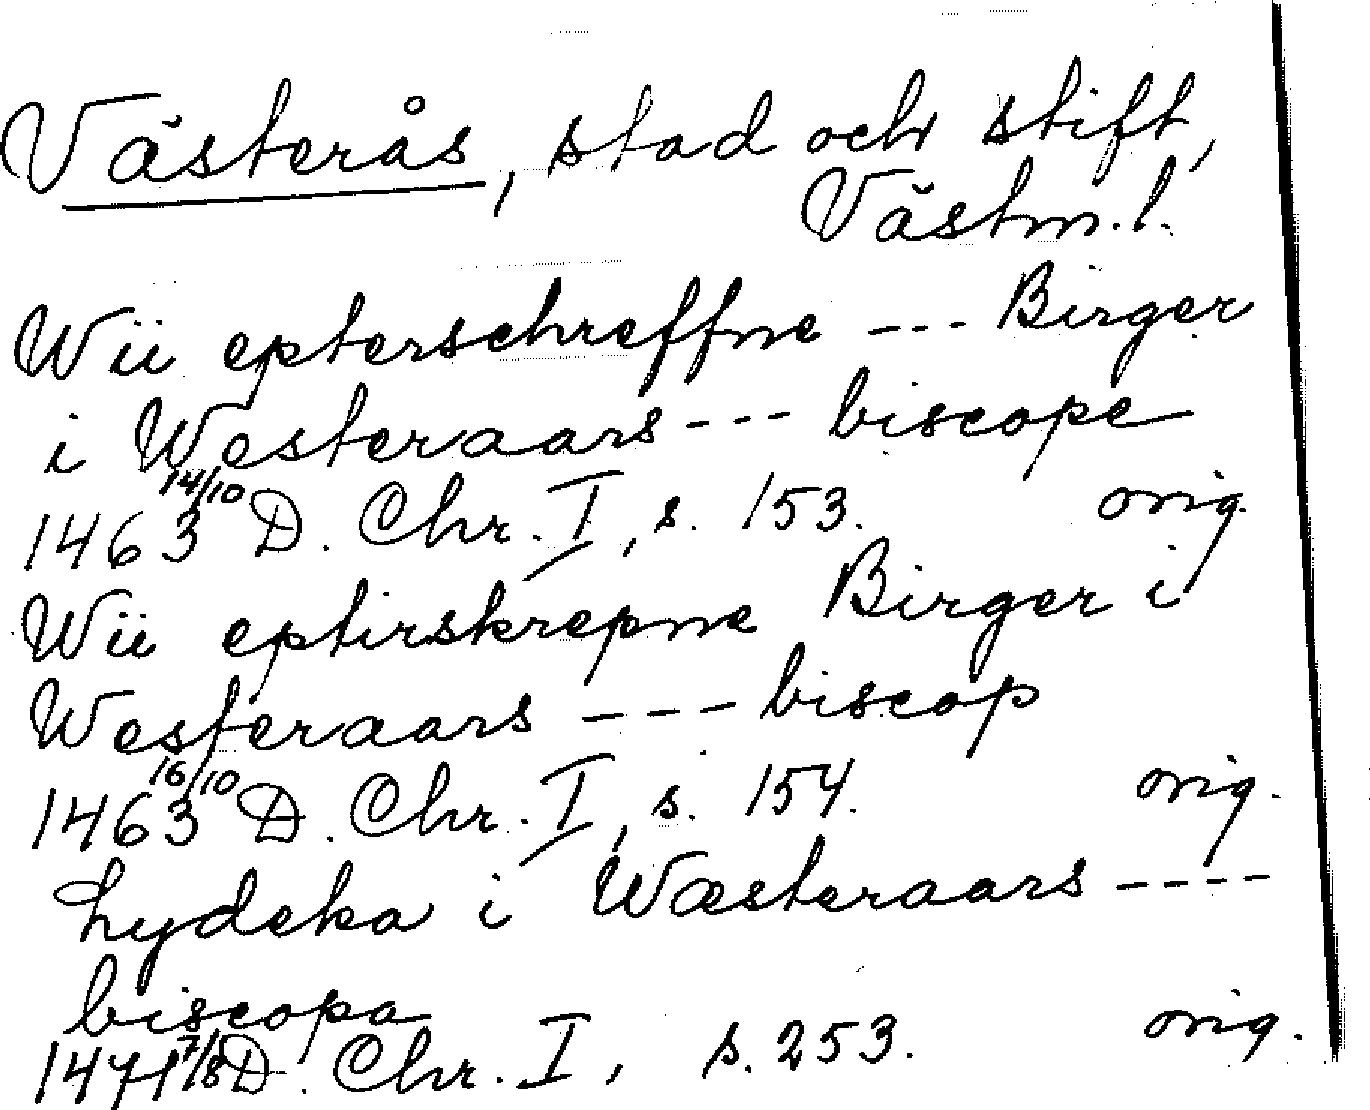 Västerås, stad och stift,
Västm. l.
Wii epterschreffne --- Birger
i Westeraars --- biscope
1463 14/10 D. Chr. I, s. 153. orig.
Wii eptirskrepne Birger i
Westeraars --- biscop
1463 16/10 D. Chr. I, s. 154. orig.
Lydeka i Wæsteraars ----
biscopa
1471 7/8 D. Chr. I, s. 253. orig.